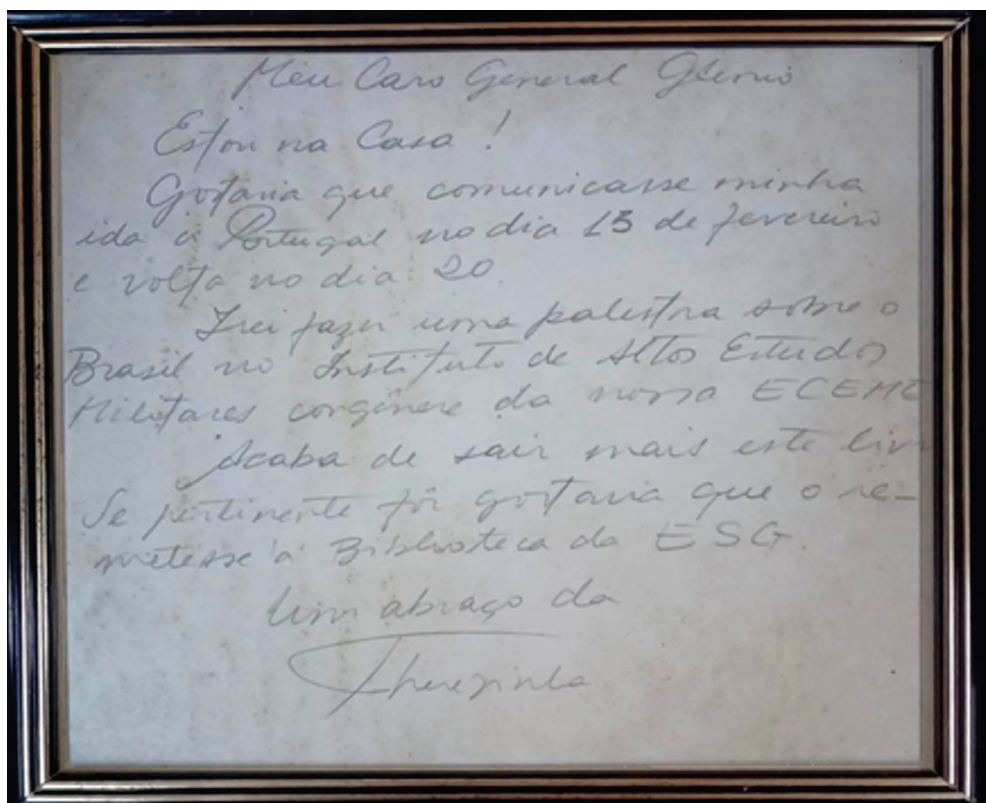 Meu Caro General Glenio
Estou na Casa !
Gostaria que comunicasse minha
ida à Portugal no dia 13 de fevereiro
e volta no dia 20.
Irei fazer uma palestra sobre o
Brasil no Instituto de Altos Estudos
Militares congênere da nossa ECEME
Acaba de sair mais este livr
Se pertinente fôr gostaria que o re-
metesse à Biblioteca da ESG.
Um abraço da
Therezinha